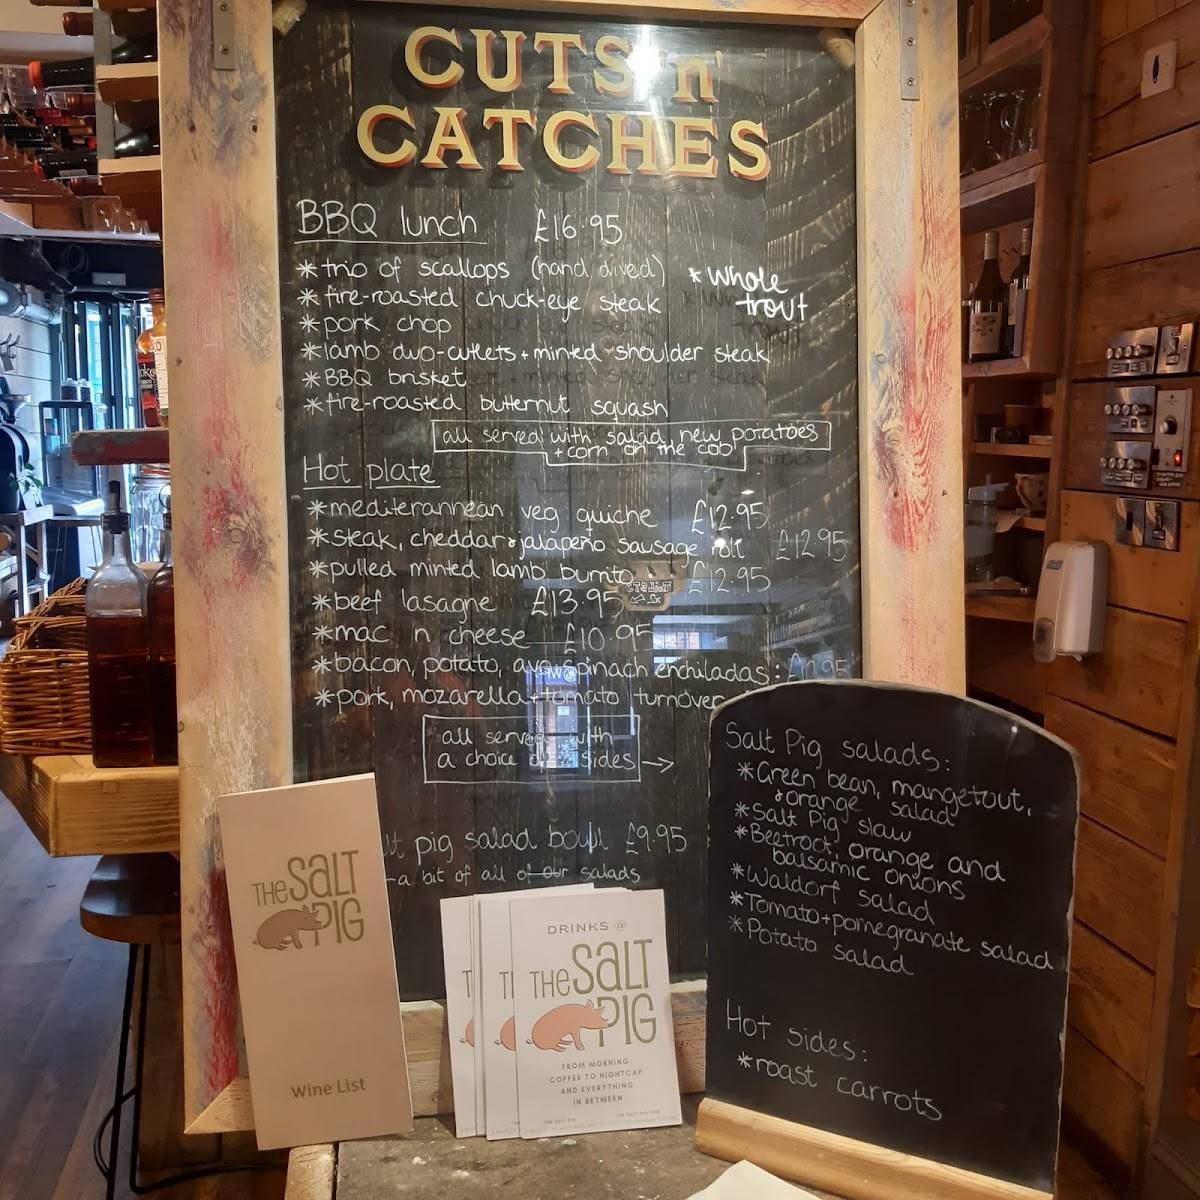 CUTS 'n'
CATCHES
BBQ lunch £16.95
*trio of scallops (hand dived)
*fire-roasted chuck-eye steak
*pork chop
*lamb duo-cutlets + minted shoulder steak
*BBQ brisket
*fire-roasted butternut squash
*Whole
trout
all served with salad, new potatoes
+ corn on the cob
Hot plate
*mediterannean veg quiche £12.95
*steak, cheddar & jalapeño sausage roll £12.95
*pulled minted lamb burrito £12.95
*beef lasagne £13.95
*mac n cheese £10.95
*bacon, potato, spinach enchiladas:
*pork, mozarella + tomato turnover
all served with
a choice of sides →
pig salad bowl £9.95
-a bit of all of our salads
Salt Pig salads:
*Green bean, mangetout,
& orange salad
*Salt Pig slaw
*Beetroot, orange and
balsamic onions
*Waldorf salad
*Tomato + pomegranate salad
*Potato salad
Hot sides:
*roast carrots
THE SALT
PIG
Wine List
DRINKS @
THE SALT
PIG
FROM MORNING
COFFEE TO NIGHTCAP
AND EVERYTHING
IN BETWEEN